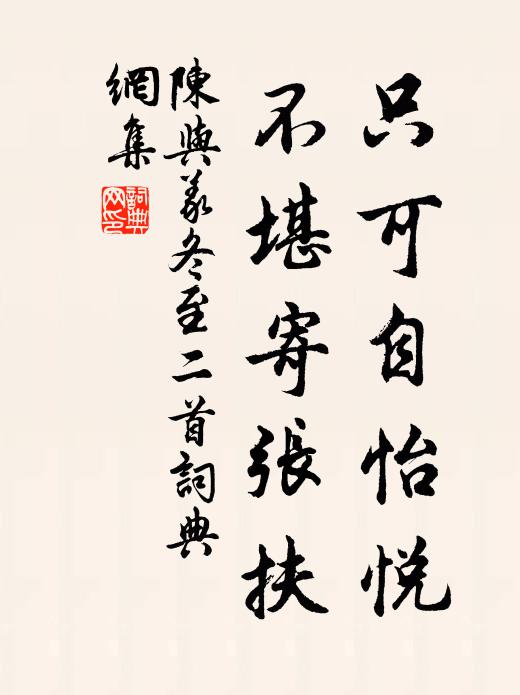 只可自怡悅
不堪寄張扶
陳與義冬至二首詞典
網集
詞典
网印